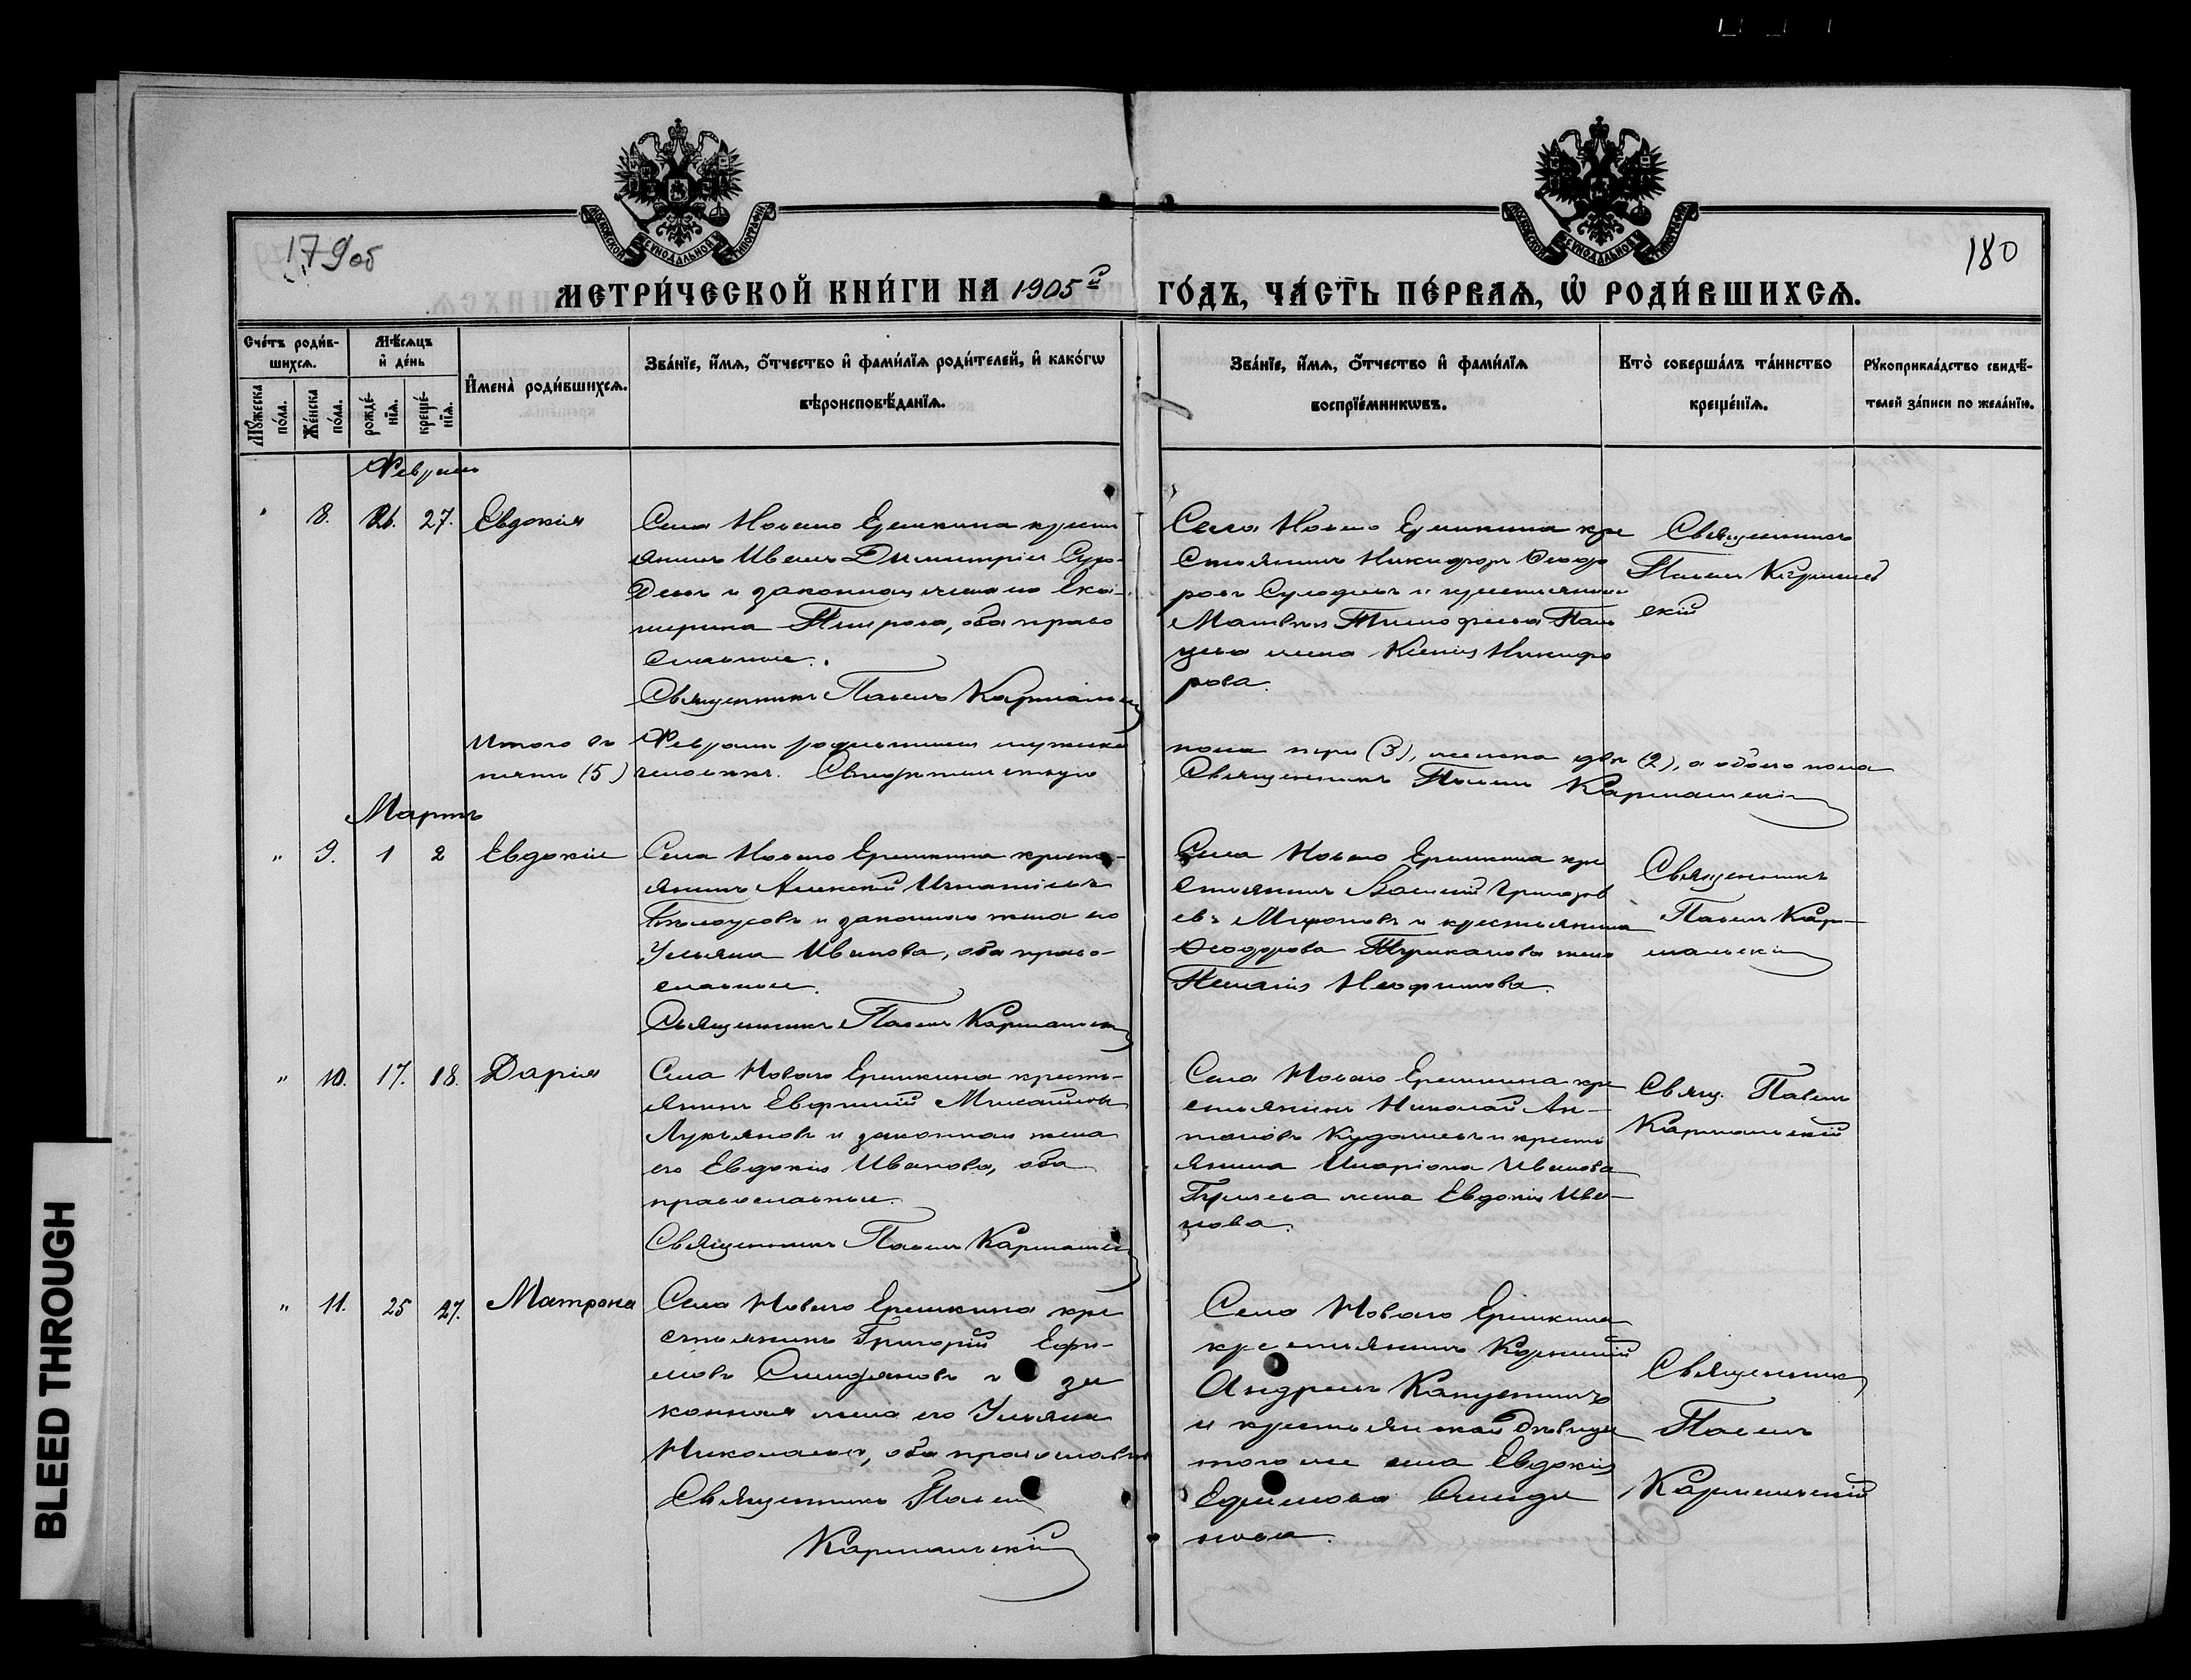 179об
180
МОСКОВСКОЙ СѴНОДАЛЬНОЙ ТИПОГРАФІИ
МОСКОВСКОЙ СѴНОДАЛЬНОЙ ТИПОГРАФІИ
МЕТРИ́ЧЕСКОЙ КНИ́ГИ НА 1905й ГО́ДЪ, ЧА́СТЬ ПЕ́РВАѦ, Ѡ РОДИ́ВШИХСѦ.
Сче́тъ роди́в-
шихсѧ.
Мѣ́сѧцъ
и де́нь
Мꙋ́жеска
по́ла.
Же́нска
по́ла.
рожде́-
нїѧ.
креще́-
нїѧ.
Имена̀ роди́вшихсѧ.
Зва́нїе, и́мѧ, о́тчество и фами́лїѧ роди́телей, и како́гѡ
вѣроисповѣ́данїѧ.
Зва́нїе, и́мѧ, о́тчество и фами́лїѧ
воспрїе́мникѡвъ.
Кто̀ соверша́лъ та́инство
креще́нїѧ.
Рꙋкоприкла́дство свидѣ́-
телей за́писи по жела́нїю.
Февраль
8. 26. 27. Евдокія
Села Новаго Ерѣмкина кресть
янинъ Иванъ Димитріевъ
и законная жена его Ека-
терина Петрова, оба право
славные.
Священникъ Павелъ Кармальскій
Села Новаго Еремкина кре
стьянинъ Никифоръ Ѳеодо
ровъ и крестьянина
Матвѣя Тимофеева
жена Ксенія Никифо
рова.
Священникъ
Павелъ Кармаль
скій
Итого въ Февралѣ родившихся мужска пола три (3), женска двѣ (2), а обоего пола
пять (5) человѣкъ. Священникъ Павелъ Кармальскій
Мартъ
" 9. 1 2 Евдокія
Села Новаго Еремкина кресть-
янинъ Алексій Игнатіевъ
Бѣлоусовъ и законная жена его
Ульяна Иванова, оба право-
славные.
Священникъ Павелъ Кармальскій
Села Новаго Еремкина кре
стьянинъ Василій Григорь
евъ Мироновъ и крестьянина
Ѳеодорова жена
Пелагія
Священникъ
Павелъ Кар-
мальскій
" 10. 17. 18. Дарія
Села Новаго Еремкина кресть-
янинъ Евфимій Михайловъ
Лукьяновъ и законная жена
его Евдокія Иванова, оба
православные.
Священникъ Павелъ Кармальскій
Села Новаго Еремкина кре
стьянинъ Николай Ан-
тоновъ Кудашевъ и кресть
янина Иларіона Иванова
жена Евдокія Ива-
нова.
Свящ. Павелъ
Кармальскій
" 11. 25 27. Матрона
Села Новаго Еремкина кре
стьянинъ Григорій Ефи-
мовъ и за
конная жена его Ульяна
Николаева, оба православн
Священникъ Павелъ
Кармальскій
Села Новаго Еремкина
крестьянинъ Корнилій
Андреевъ
и крестьянская дѣвица
того же села Евдокія
Ефимова
нова.
Священникъ
Павелъ
Кармальскій
BLEED THROUGH